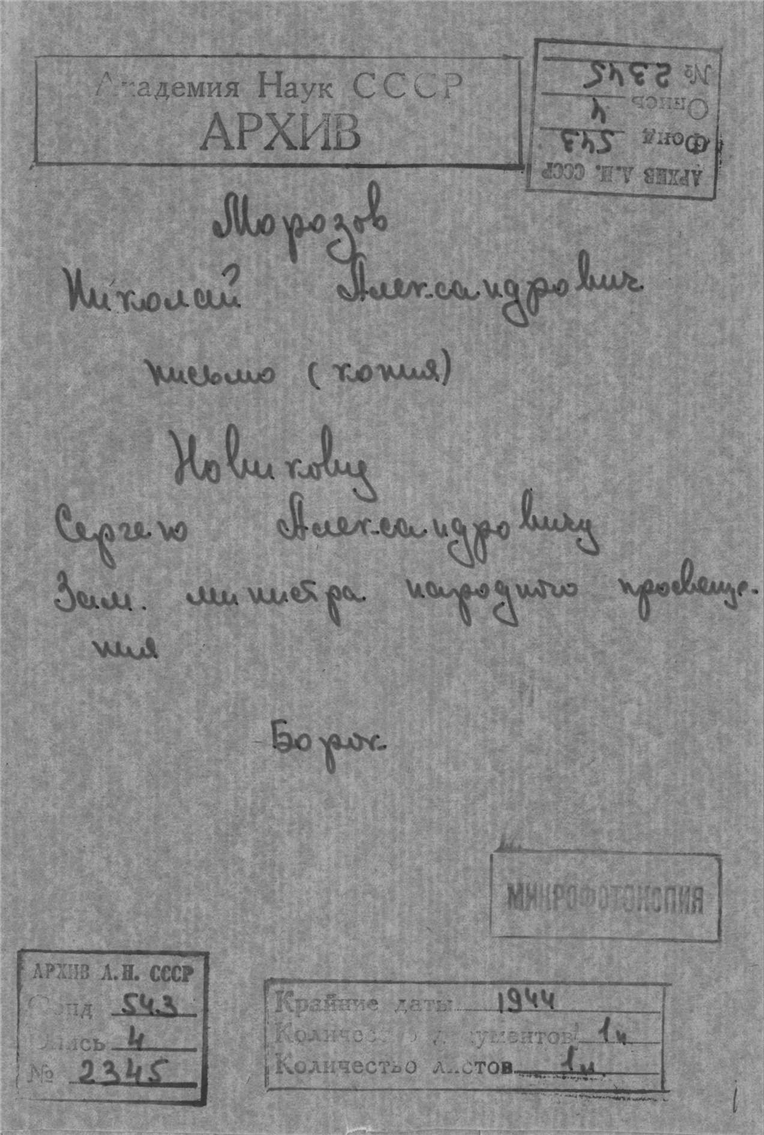 Академия Наук СССР
АРХИВ
№ 2345
Опись 4
Фонд 543
АРХИВ А.Н. СССР
Морозов
Николай Александрович
письмо (копия)
Новикову
Сергею Александровичу
Зам. министра народного просвеще-
ния
Борок
МИКРОФОТОКОПИЯ
АРХИВ А.Н. СССР
Фонд 543
Опись 4
№ 2345
Крайние даты 1944
Количество документов 1
Количество листов 1